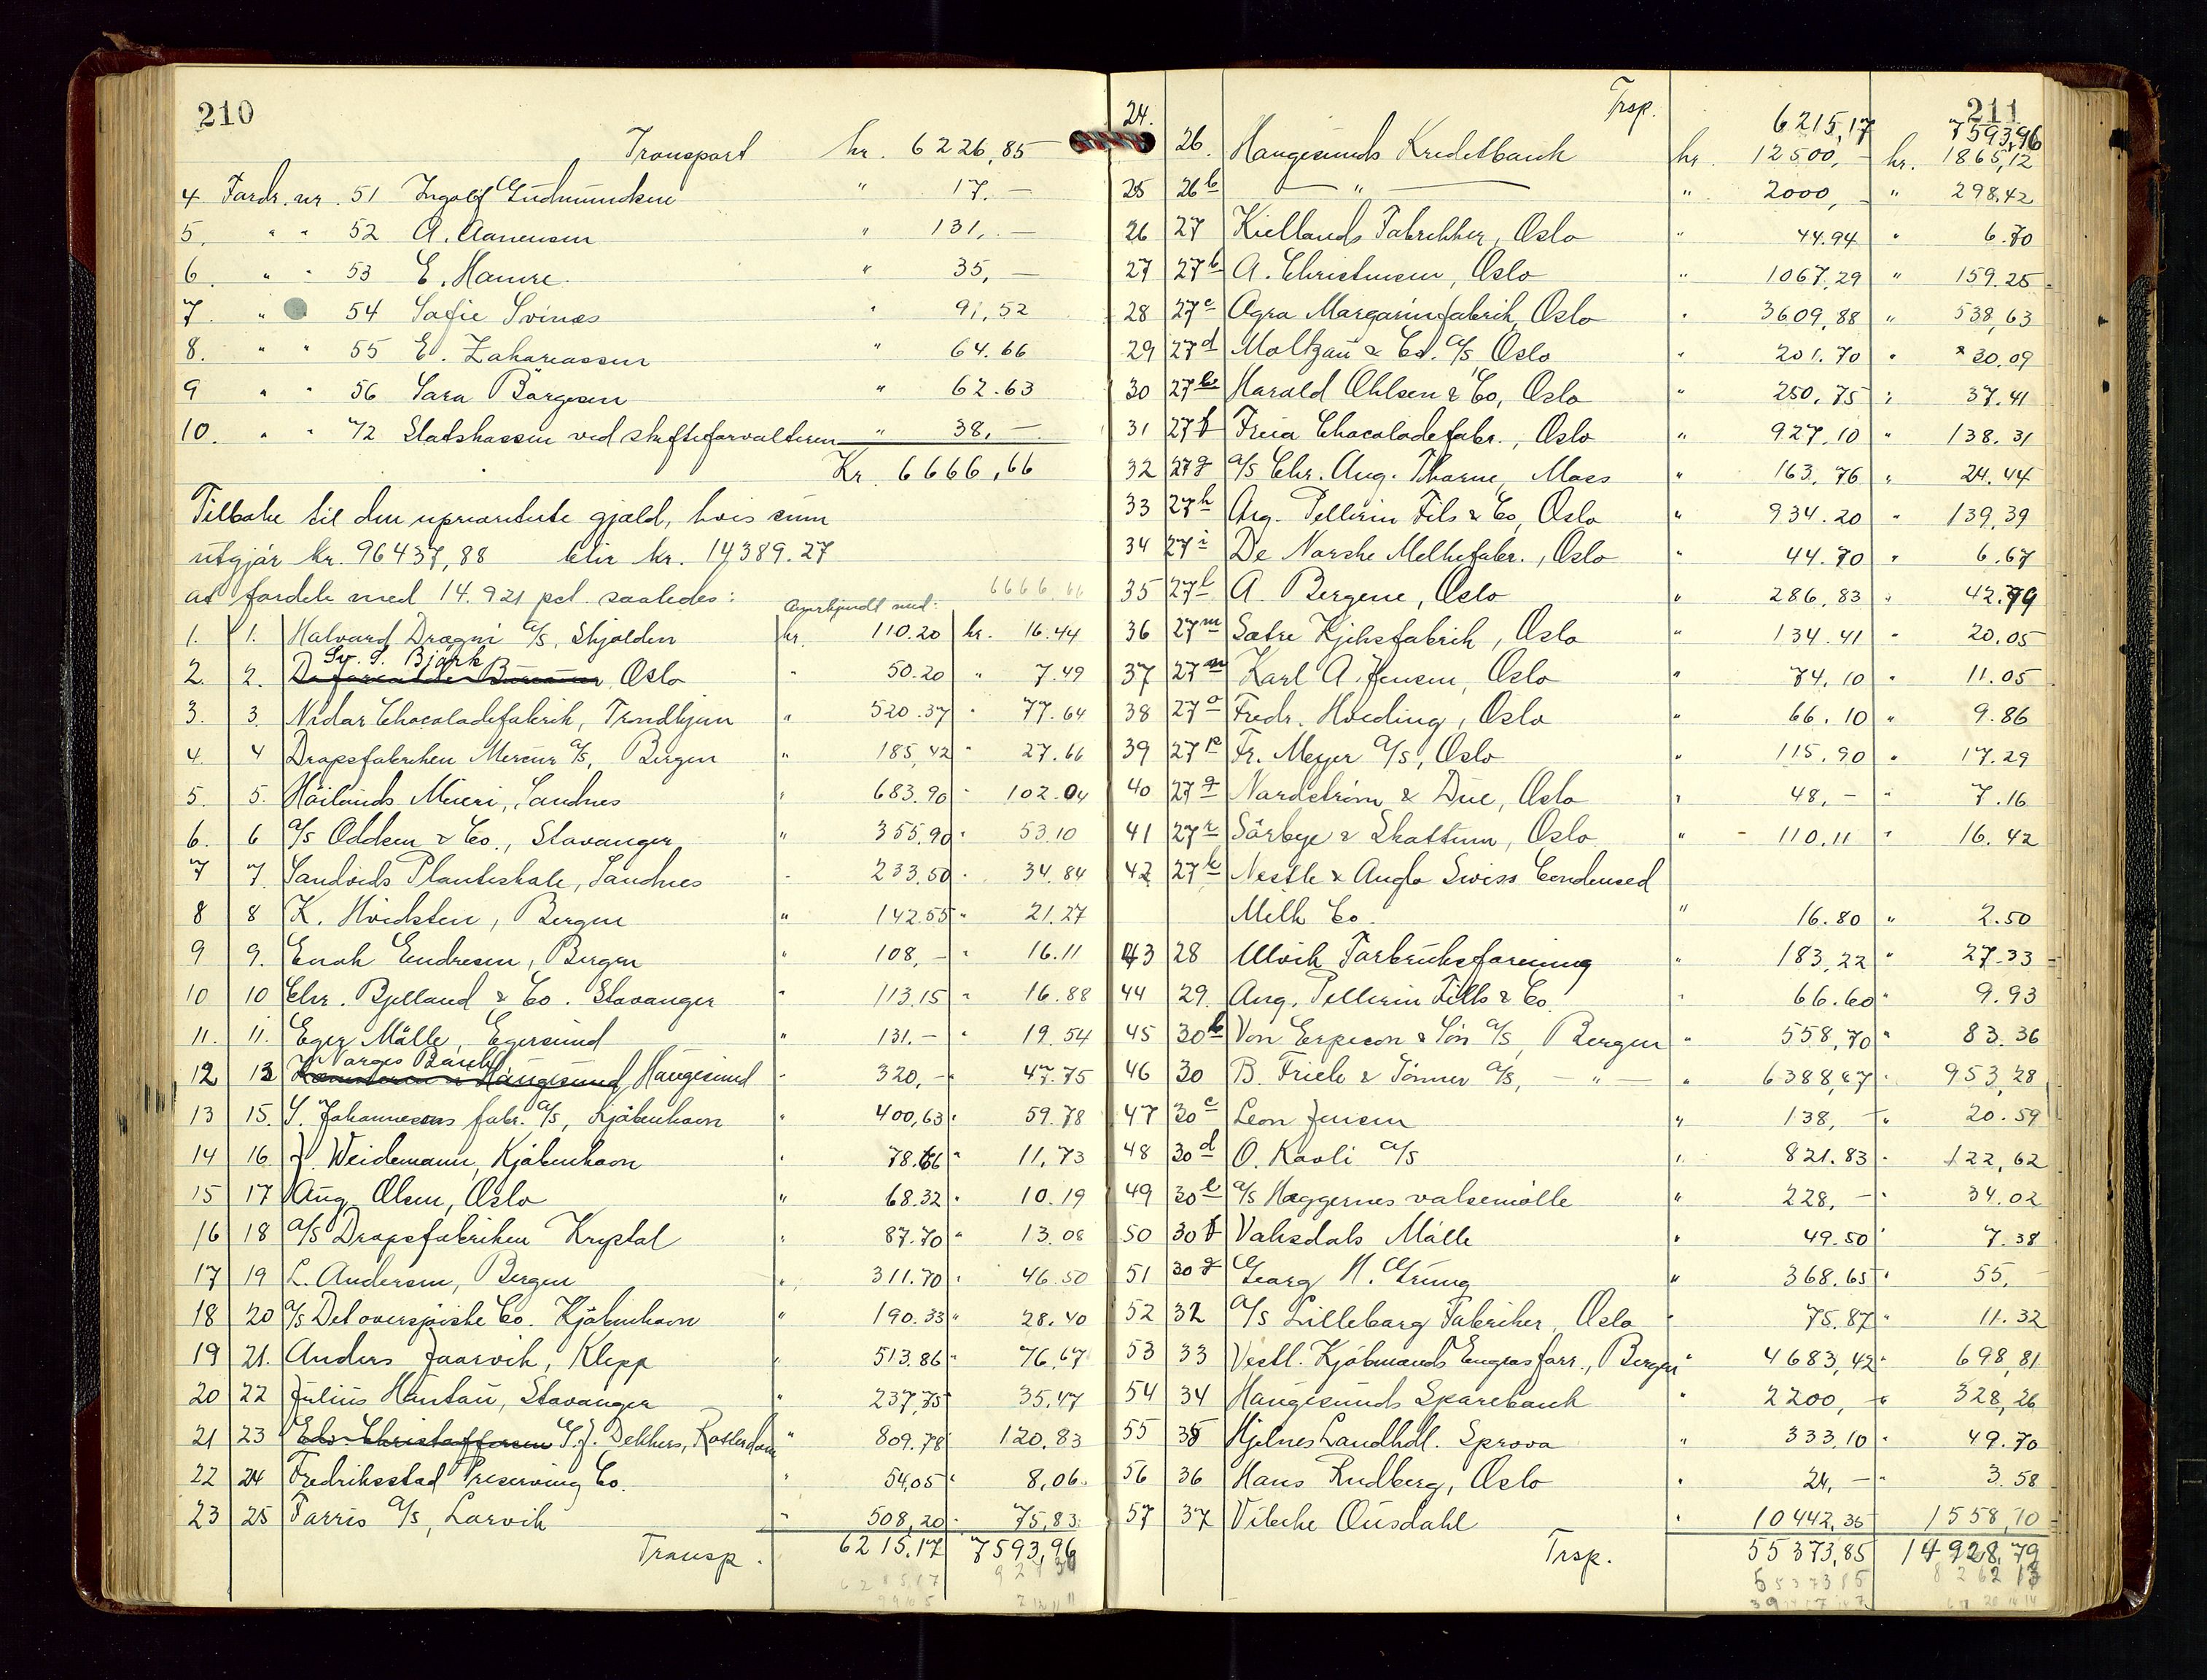 210
Transport kr. 6226,85
4 Fordr. nr. 51 Ingolf Gudmundsen " 17.—
5. " " 52 A. Aanensen " 131,.—
6. " " 53 E. Hamre. " 35,—
7. " 54 Sofie Svinæs " 91,52
8. " " 55 E. Zakariassen " 64.66
9 " " 56 Sara Børgesen " 62.63
10. " " 72 Statskassen ved skifteforvalteren " 38,—
Kr. 6666,66
Tilbake til den uprioriterte gjæld, hvis sum
utgjør kr. 96437,88 blir kr. 14389.27
at fordele med 14.921 pct. saaledes:
6666,66
Anerkjendt med:
1. 1. Halvard Drægni A/S, Skjolden kr. 110.20 kr. 16.44
2. 2. Sv. S. Bjørk Oslo " 50.20 " 7.49
3. 3. Nidar Chocoladefabrik, Trondhjem " 520.37 " 77.64
4. 4 Dropsfabrikken Mercur A/S, Bergen " 185,42 " 27.66
5. 5. Høilands Mieri, Sandnes " 683.90 " 102.04
6. 6 A/S Oddsen & Co., Stavanger " 355,90 " 53.10
7 7. Sandveds Planteskole, Sandnes " 233.50 " 34.84
8 8 K. Hvidsten, Bergen " 142.55 " 21.27
9 9. Enok Endresen, Bergen " 108,— " 16.11
10 10 Chr. Bjelland & Co. Stavanger " 113.15 " 16.88
11. 11. Eger Mølle, Egersund " 131.— " 19.54
12 13 Norges Bank Haugesund " 320,— " 47.75
13 15. S. Johannesens fabr. A/S, Kjøbenhavn " 400,63 " 59.78
14 16. J. Weidemann, Kjøbenhavn " 78.66 " 11,73
15 17 Aug. Olsen, Oslo " 68.32 " 10.19
16 18 A/S Dropsfabriken Krystal " 87.70 " 13.08
17 19 L. Andersen, Bergen " 311.70 " 46.50
18 20 A/S Det oversjøiske Co. Kjøbenhavn " 190.33 " 28.40
19 21. Anders Jaarvik, Klepp " 513.86 " 76.67
20 22 Julius Huntau, Stavanger " 237,75 35,47
21 23 Edv. Christoffersen S. J. Dekkers, Rotterdam " 809.78 120.83
22 24 Fredriksstad Preserving Co. " 54,05 " 8,06.
23 25 Farris A/S, Larvik " 508,20 " 75,83.
Transp. 6215,17 7593,96
211
Trsp. 6215,17 7593,96
24. 26. Haugesunds Kreditbank kr. 12500,— kr. 1865,12
25 26b — " — " 2000,— " 298,42
26 27 Kiellands Fabrikker, Oslo " 44.94 " 6.70
27 27b A. Christensen, Oslo " 1067,29 " 159.25
28 27c Agra Margarinfabrik, Oslo " 3609,88 " 538,63
29 27d Moltzau & Co. A/S, Oslo " 201.70 " 30.09
30 27e Harald Ohlsen & Co, Oslo " 250,75 " 37.41
31 27f Freia Chocoladefabr., Oslo " 927.10 " 138.31
32 27g A/S Chr. Aug. Thorne, Moss " 163,76 " 24.44
33 27h Aug. Pellerin Fils & Co, Oslo " 934.20 " 139,39
34 27i De Norske Melkefabr., Oslo " 44.70 " 6.67
35 27l A. Bergene, Oslo " 286,83 " 42.79
36 27m Sætre Kjeksfabrik, Oslo " 134.41 " 20.05
37 27n Karl A. Jensen, Oslo " 74,10 " 11.05
38 27o Fredr. Hveding, Oslo " 66.10 " 9.86
39 27p Fr. Meyer A/S, Oslo " 115.90 " 17.29
40 27q Nordstrøm & Due, Oslo " 48,— " 7.16
41 27r Sørbye & Skattum, Oslo " 110.11 " 16.42
42 27k Nestle & Anglo Swiss Condensed
Milk Co. " 16.80 " 2.50
43 28 Ulvik Forbruksforening " 183,22 " 27.33
44 29. Aug. Pellerin Fills & Co. " 66.60 " 9.93
45 30b Von Erpecon & Søn A/S, Bergen " 558,70 " 83.36
46 30 B. Friele & Sønner A/S, — " — " 6388,87 " 953,28
47 30c Leon Jensen " 138,— " 20.59
48 30d O. Kavli A/S " 821.83 " 122,62
49 30e A/S Hæggernes valsemølle " 228,— " 34.02
50 30f Vaksdals Mølle " 49.50 " 7.38
51 30g Georg H. Grung " 368.65 " 55,—
52 32 A/S Lilleborg Fabriker, Oslo " 75.87 " 11.32
53 33 Vestl. Kjøbmands Engrosforr., Bergen " 4683,42 " 698,81
54 34 Haugesunds Sparebank " 2200,— " 328,26
55 35 Hjelnes Landhdl. Sprova " 333,10 " 49.70
56 36 Hans Rudberg, Oslo " 24,— " 3.58
57 37 Vibeke Ousdahl " 10442,35 1558,10
Trsp. 55373,85 14928,79